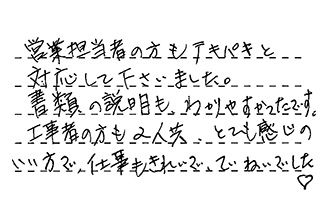 営業担当者の方もテキパキと
対応して下さいました。
書類の説明も、わかりやすかったです。
工事者の方も2人共、とても感じの
いい方で、仕事もきれいで、ていねいでした
♡